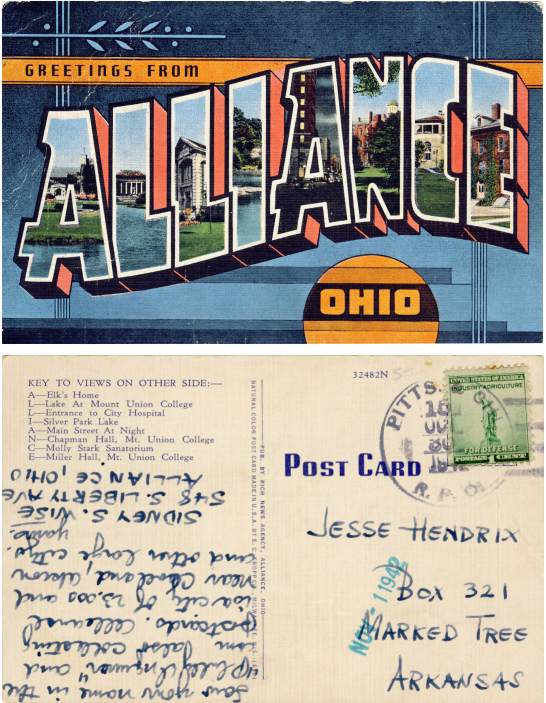 GREETINGS FROM
ALLIANCE
OHIO
KEY TO VIEWS ON OTHER SIDE:—
A—Elk's Home
L—Lake At Mount Union College
L—Entrance to City Hospital
I—Silver Park Lake
A—Main Street At Night
N—Chapman Hall, Mt. Union College
C—Molly Stark Sanatorium
E—Miller Hall, Mt. Union College
Saw your name in the
"Philly Inquirer" and
am also collecting
postcards. Alliance
is a city of 23,000 and
near Cleveland, Akron,
and other large citys.
Yours,
SIDNEY S. WISE
548 S. LIBERTY AVE
ALLIANCE, OHIO
NATURAL COLOR POST CARD MADE IN U.S.A. BY E. C. KROPP CO., MILWAUKEE, WIS.
PUB. BY RICH NEWS AGENCY, ALLIANCE, OHIO
32482N
POST CARD
PITTS. &
30
R.P.O.
UNITED STATES OF AMERICA
INDUSTRY AGRICULTURE
FOR DEFENSE
POSTAGE 1 CENT
JESSE HENDRIX
BOX 321
MARKED TREE
ARKANSAS
NOV -1 1942